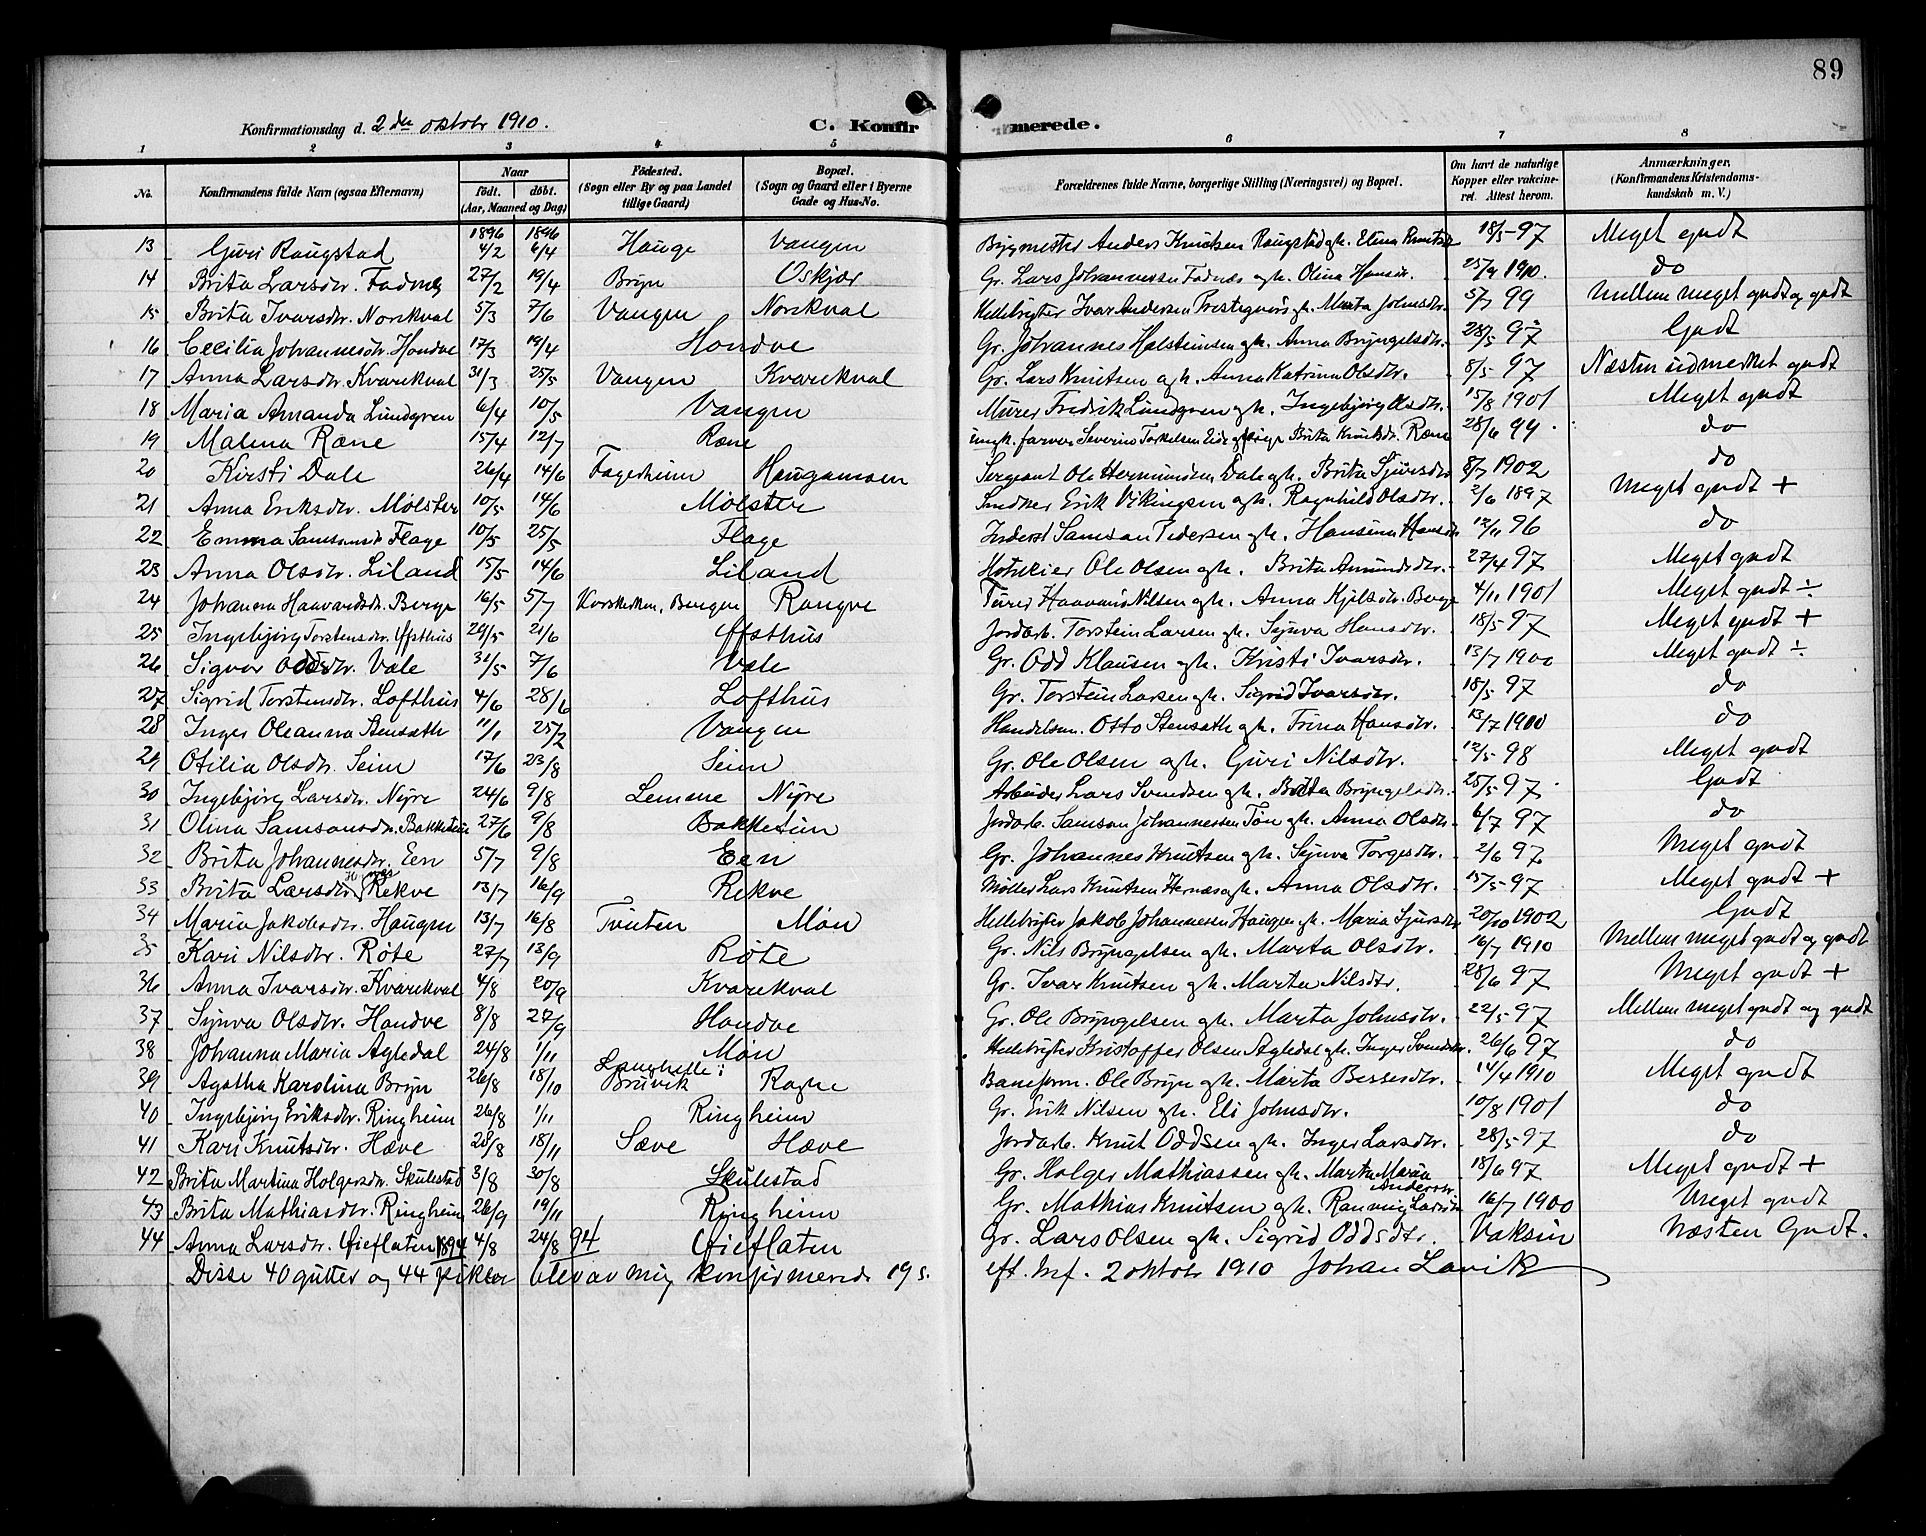 89
Konfirmationsdag d. 2den oktobr 1910. C. Konfirmerede.
1 2 3 4 5 6 7 8
No. Konfirmandens fulde Navn (ogsaa Efternavn) Naar födt. döbt. (Aar, Maaned og Dag) Födested. (Sogn eller By og paa Landet tillige Gaard) Bopæl. (Sogn og Gaard eller i Byerne Gade og Hus-No. Forældrenes fulde Navne, borgerlige Stilling (Næringsvei) og Bopæl. Om havt de naturlige Kopper eller vakcineret. Attest herom. Anmærkninger. (Konfirmandens Kristendomskundskab m. V.)
13 Guri Raugstad 1896 4/2 1896 6/4 Hauge Vangen Bygmester Anders Knutsen Raugstad gh. Elina Knutsdr 18/5-97 Meget godt
14 Brita Larsdtr. Fadnes 27/2 19/4 Bryn Oskjær Gr. Lars Johannessen Fadnæs gh. Olina Hansdr. 25/9 1910. do
15 Brita Ivarsdtr. Norekval 5/3 7/6 Vangen Norekval Ivar Andersen gh. Marta Johnsdr. 5/7 99 Mellem meget godt og godt
16 Cecilia Johannesdtr. Hondve 17/3 19/4 Hondve Gr. Johannes Holsteinsen gh. Anna Bryngelsdtr. 28/5 97 Godt
17 Anna Larsdtr. Kvarekval 31/3 25/5 Vangen Kvarekval Gr. Lars Knutsen gh. Anna Katrina Olsdtr. 8/5-97 Næsten udmerket godt
18 Maria Amanda Lundgren 6/4 10/5 Vangen Murer Fredrik Lundgren gh. Ingebjørg Olsdtr. 15/8 1901 Meget godt
19 Malena Ræne 15/4 12/7 Ræne ungk. farver Severin Torkelsen Eide og pige Brita Knutsdr. Ræne 28/6 99. do
20 Kirsti Dale 26/4 14/6 Fagerheim Haugamoen Sergeant Ole Hermundsen Dale gh. Brita Sjursdtr 8/7 1902 do
21 Anna Eriksdtr. Mølster 10/5 14/6 Mølster Snedker Erik Vikingsen gh. Ragnhild Olsdtr. 2/6 1897 Meget godt +
22 Emma Samsonsdr Flage 10/5 25/5 Flage Inderst Samson Pedersen gh. Hansina Hansdr 12/11 96 do
23 Anna Olsdtr. Liland 15/5 14/6 Liland Ole Olsen gh. Brita Amundsdtr. 27/4 97 Meget godt
24 Johanna Haavardsdr. Berge 16/5 5/7 Korskirken, Bergen Rongve Haavard Nilsen gh. Anna Kjelsdtr. Berge 4/11 1901 Meget godt ÷
25 Ingebjørg Torstensdtr. Ufsthus 29/5 21/6 Ufsthus Jordarb. Torstein Larsen gh. Synva Hansdtr. 18/5-97 Meget godt +
26 Sigvor Oddsdtr. Væle 31/5 7/6 Væle Gr. Odd Klausen gh. Kristi Ivarsdtr. 13/7 1900 Meget godt ÷
27 Sigrid Torstensdtr. Lofthus 4/6 28/6 Lofthus Gr. Torstein Larsen gh. Sigrid Ivarsdtr. 18/5-97 do
28 Inger Oleanna Stensæth 11/1 25/2 Vangen Handelsm. Otto Stensæth gh. Trina Hansdtr. 13/7 1900 do
29 Otilia Olsdtr. Seim 17/6 23/8 Seim Gr. Ole Olsen gh. Guri Nilsdtr. 12/5 98 Meget godt
30 Ingebjørg Larsdtr. Nyre 24/6 9/8 Lemme Nyre Arbeider Lars Svendsen gh. Brita Bryngelsdtr. 25/5-97 Godt
31 Olina Samsonsdr. Bakketun 27/6 9/8 Bakketun Jordarb. Samson Johannessen Tøn gh. Anna Olsdtr 6/7 97 do
32 Brita Johannesdtr. Een 5/7 9/8 Een Gr. Johannes Knutsen gh. Synva Torgersdtr. 2/6 97 Meget godt
33 Brita Larsdtr. Hernæs Rekve 13/7 16/9 Rekve Møller Lars Knutsen Hernæs gh. Anna Olsdtr. 15/5-97 Meget godt +
34 Maria Jakobsdtr. Haugen 13/7 16/8 Tvinten Møn Jakob Johannesen Haugen gh. Maria Sjursdtr 20/10 1902 Godt
35 Kari Nilsdtr. Røte 27/7 13/9 Røte Gr. Nils Bryngelsen gh. Marta Olsdtr. 16/7 1910 Mellem meget godt og godt
36 Anna Ivarsdtr. Kvarekval 4/8 20/9 Kvarekval Gr. Ivar Knutsen gh. Marta Nilsdtr. 28/6 97 Meget godt +
37 Synva Olsdtr. Hondve 8/8 27/9 Hondve Gr. Ole Bryngelsen gh. Marta Johnsdtr. 22/5-97 Mellem meget godt og godt
38 Johanna Maria Agledal 24/8 1/11 Møn Kristoffer Olsen Agledal gh. Inger Svendsdtr. 26/6 97 do
39 Agatha Karolina Bryn 26/8 18/10 Langhelle i Bruvik Rogne Baneform. Ole Bryn gh. Marta Bessesdtr. 14/4 1910 Meget godt
40 Ingebjørg Eriksdtr. Ringheim 26/8 1/11 Ringheim Gr. Erik Nilsen gh. Eli Johnsdtr. 10/8 1901 do
41 Kari Knutsdtr. Hæve 28/8 18/11 Sæve Hæve Jordarb. Knut Oddsen gh. Inger Larsdtr. 28/5-97 do
42 Brita Martina Holgersdr. Skulestad 3/8 30/8 Skulestad Gr. Holger Mathiassen gh. Marta Maria Andersdr. 18/6 97 Meget godt +
43 Brita Mathiasdtr. Ringheim 26/9 19/11 Ringheim Gr. Mathias Knutsen gh. Ranveig Larsdtr 16/7 1900 Meget godt
44 Anna Larsdtr. Gjeflaten 1894 4/8 24/8 94 Gjeflaten Gr. Lars Olsen gh. Sigrid Oddsdtr. Vaksin Næsten Godt.
Disse 40 gutter og 44 piker blev av mig konfirmerede 19 s. eft. tref. 2 oktobr 1910 Johan Lavik